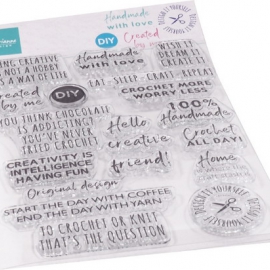 Handmade
with love
DIY
Created
by me
DESIGN IT YOURSELF
BEING CREATIVE
IS NOT A HOBBY
IT'S A WAY OF LIFE
Handmade
with love
WISH IT
DREAM IT
CREATE IT
EAT-SLEEP-CRAFT-REPEAT
Created
by me
DIY
CROCHET MORE
WORRY LESS
YOU THINK CHOCOLATE
IS ADDICTING?
YOU'VE NEVER
TRIED CROCHET
Hello,
creative
friend!
100%
Handmade
Crochet
ALL DAY!
CREATIVITY IS
INTELLIGENCE
HAVING FUN
Home
Original design
START THE DAY WITH COFFEE
END THE DAY WITH YARN
TO CROCHET OR KNIT
THAT'S THE QUESTION
DESIGN IT YOURSELF